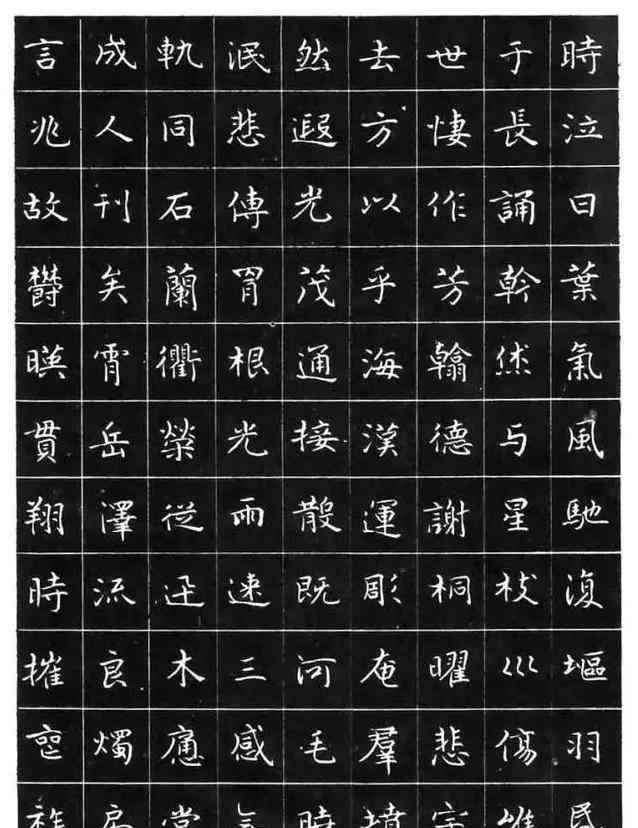 言成軌泯然去世于時
兆人同悲遐方悽長泣
故刊石傳光以作誦曰
欝矣蘭冑茂乎芳幹葉
暎霄衢根通海翰烋氣
貫岳榮光接漢德与風
翔澤從雨散運謝星馳
時流迅速既彫桐枝復
摧良木三河奄曜巛塸
喪燭痛感毛羣悲傷羽
扃堂墳宇唯